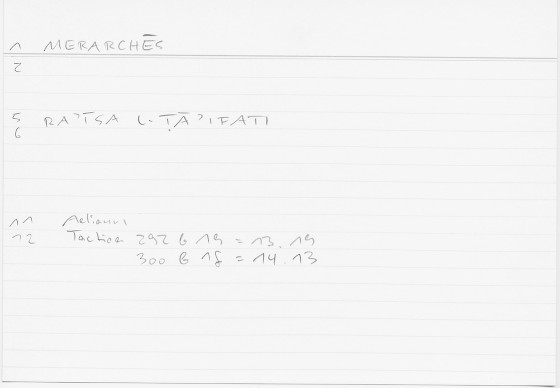 1 MERARCHĒS
2
5 RAʾĪSA L-ṬĀʾIFATI
6
11 Aelianus
12 Tactica 292 b 19 = 13.19
300 b 18 = 14.13